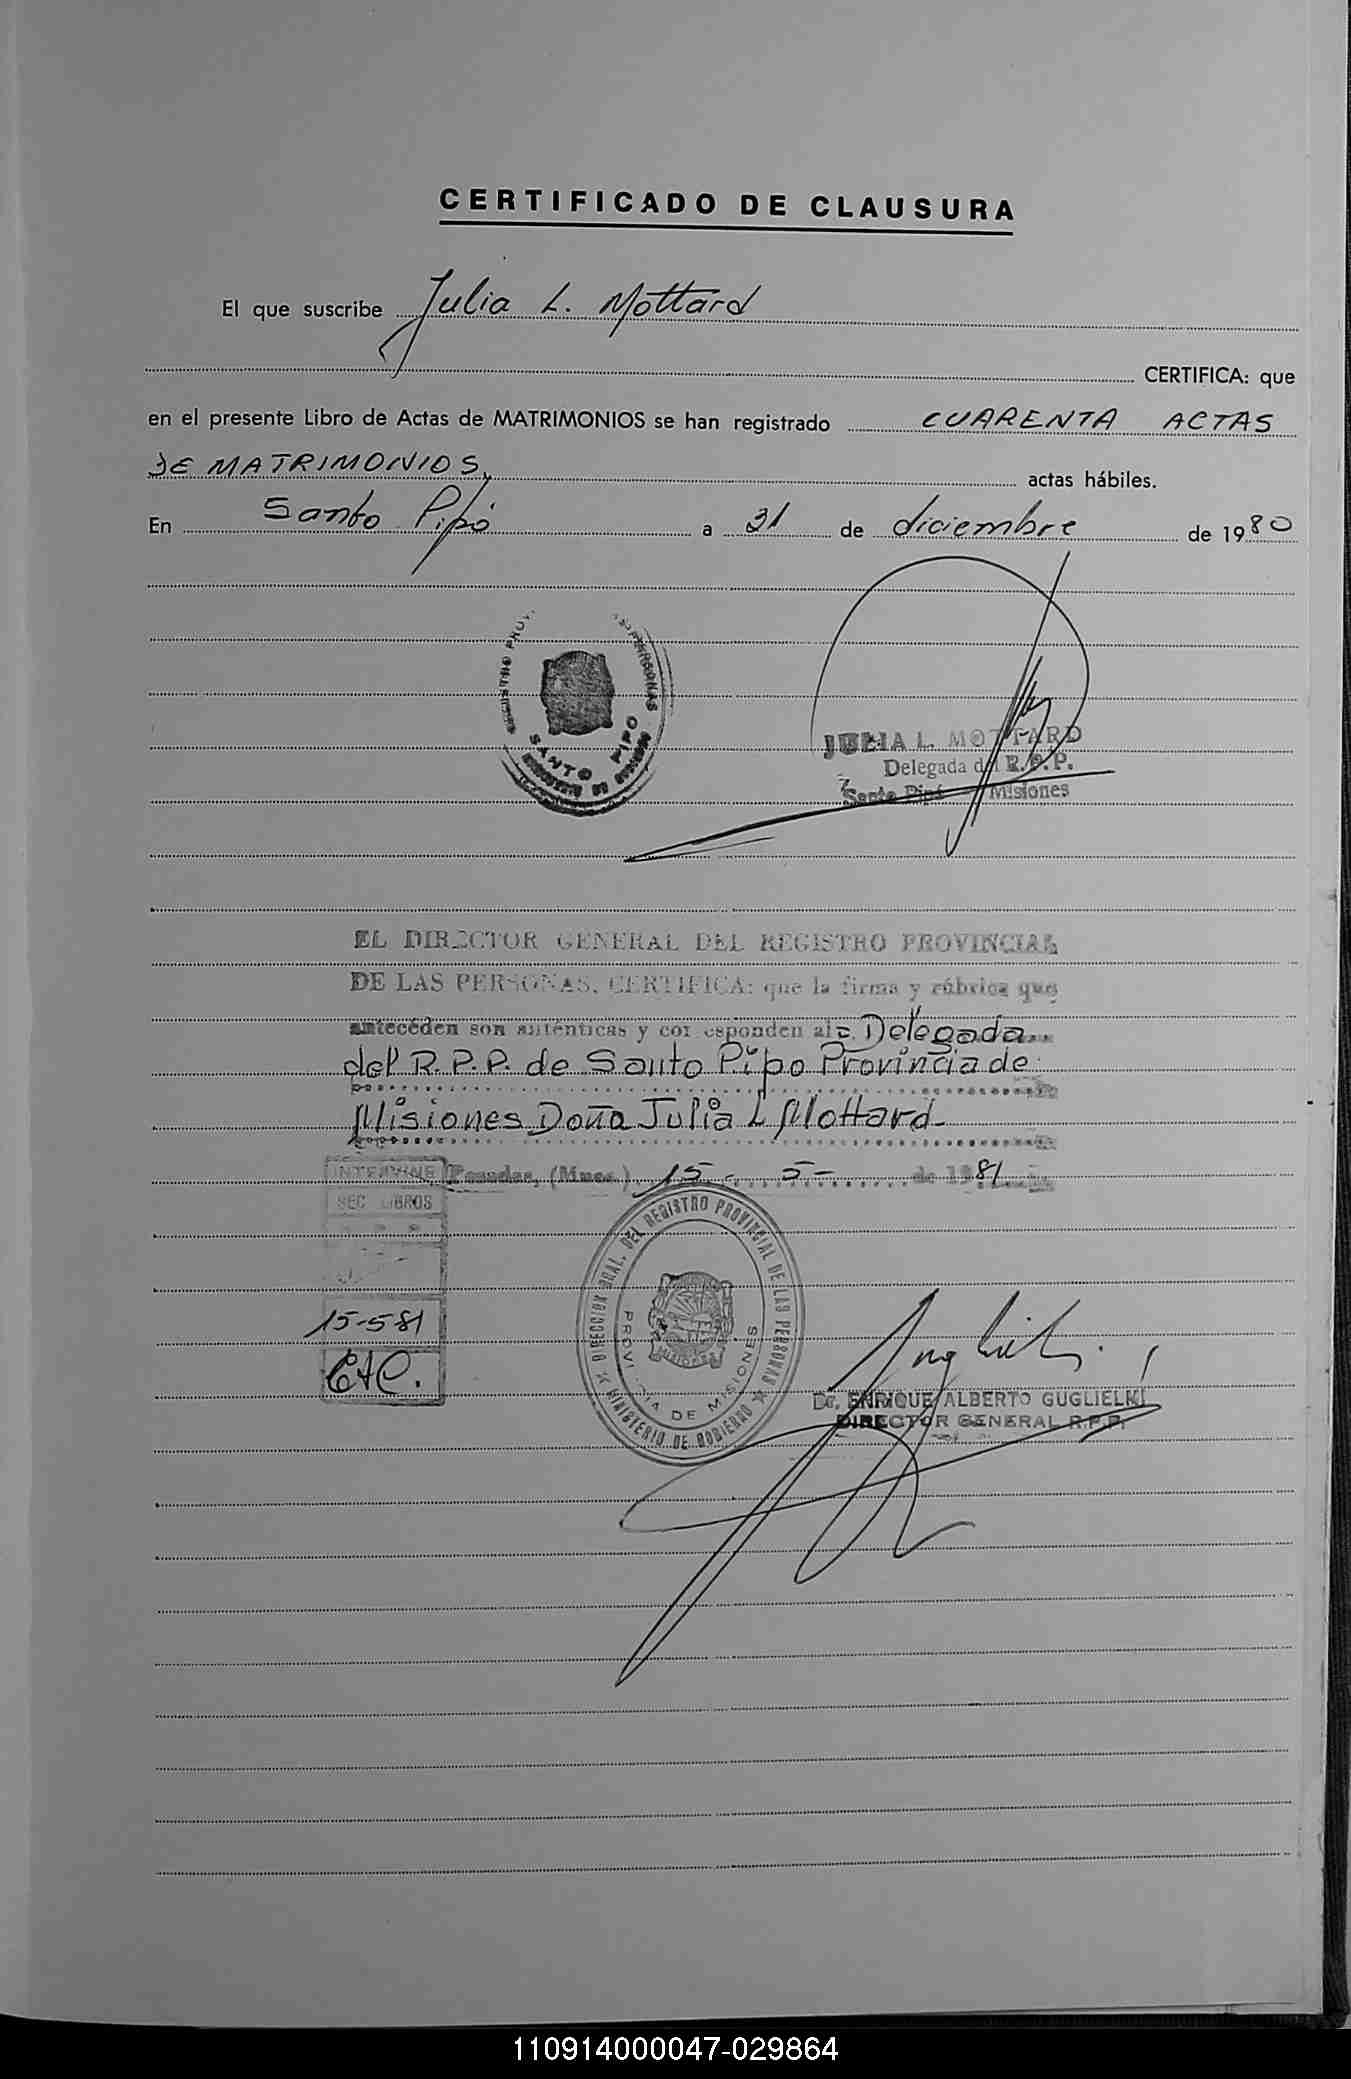 CERTIFICADO DE CLAUSURA
El que suscribe Julia L. Mottard
CERTIFICA: que
en el presente Libro de Actas de MATRIMONIOS se han registrado CUARENTA ACTAS
DE MATRIMONIOS, actas hábiles.
En Santo Pipó a 31 de diciembre de 1980
SANTO PIPO
JULIA L. MOTTARD
Delegada del R.P.P.
Santo Pipó Misiones
EL DIRECTOR GENERAL DEL REGISTRO PROVINCIAL
DE LAS PERSONAS, CERTIFICA: que la firma y rúbrica que
antecéden son auténticas y corresponden al a Delegada
del R.P.P. de Santo Pipo Provincia de
Misiones Doña Julia L Mottard
Posadas, (Mnes.) 15 5 de 1981
INTERVINE
SEC LIBROS
15-5-81
DIRECCION GRAL. DEL REGISTRO PROVINCIAL DE LAS PERSONAS
MINISTERIO DE GOBIERNO
PROVINCIA DE MISIONES
Dr. ENRIQUE ALBERTO GUGLIELMI
DIRECTOR GENERAL R.P.P.
110914000047-029864